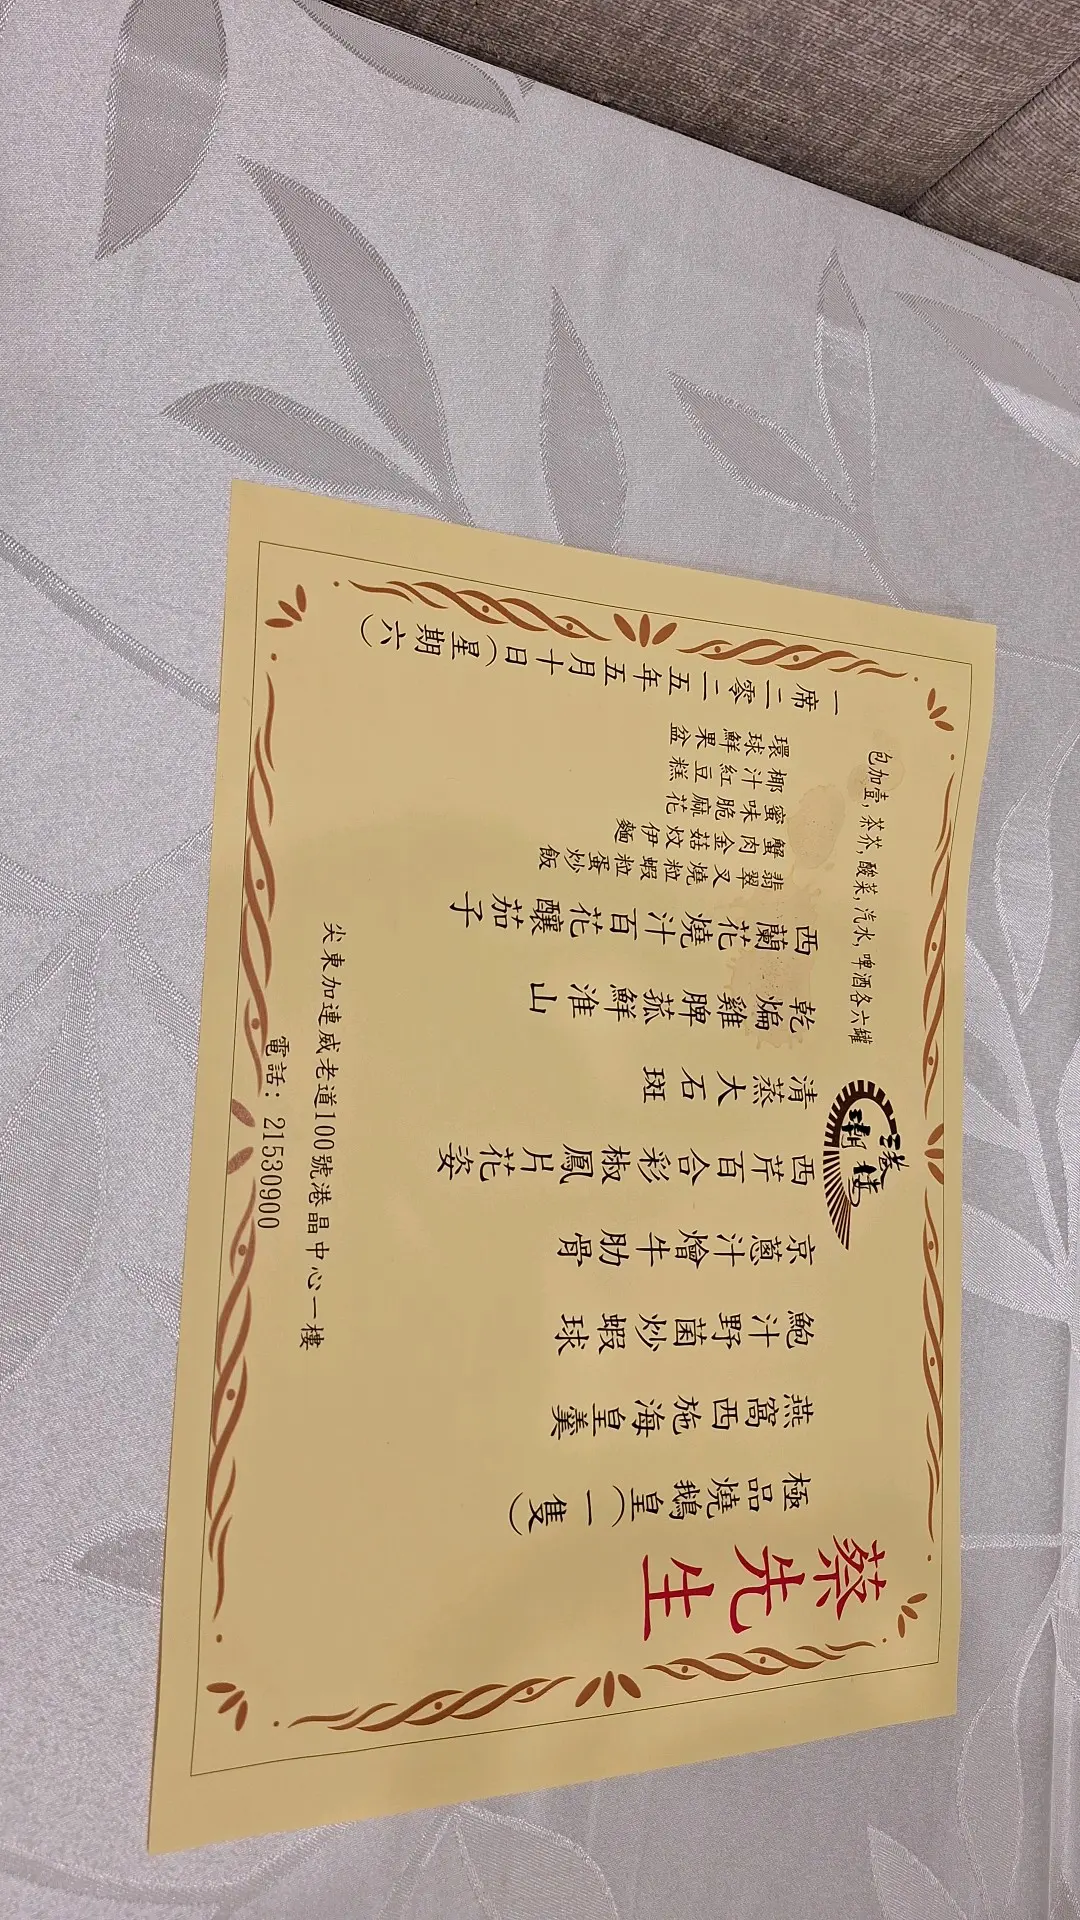 港潮樓
包加壹,茶芥,酸菜,汽水,啤酒各六罐
蔡先生
極品燒鵝皇(一隻)
燕窩西施海皇羹
鮑汁野菌炒蝦球
京蔥汁燴牛肋骨
西芹百合彩椒鳳片花姿
清蒸大石斑
乾煸雞脾菰鮮淮山
西蘭花燒汁百花釀茄子
翡翠叉燒粒蝦粒蛋炒飯
蟹肉金菇炆伊麵
蜜味脆麻花
椰汁紅豆糕
環球鮮果盆
一席
二零二五年五月十日(星期六)
尖東加連威老道100號港晶中心一樓
電話: 21530900